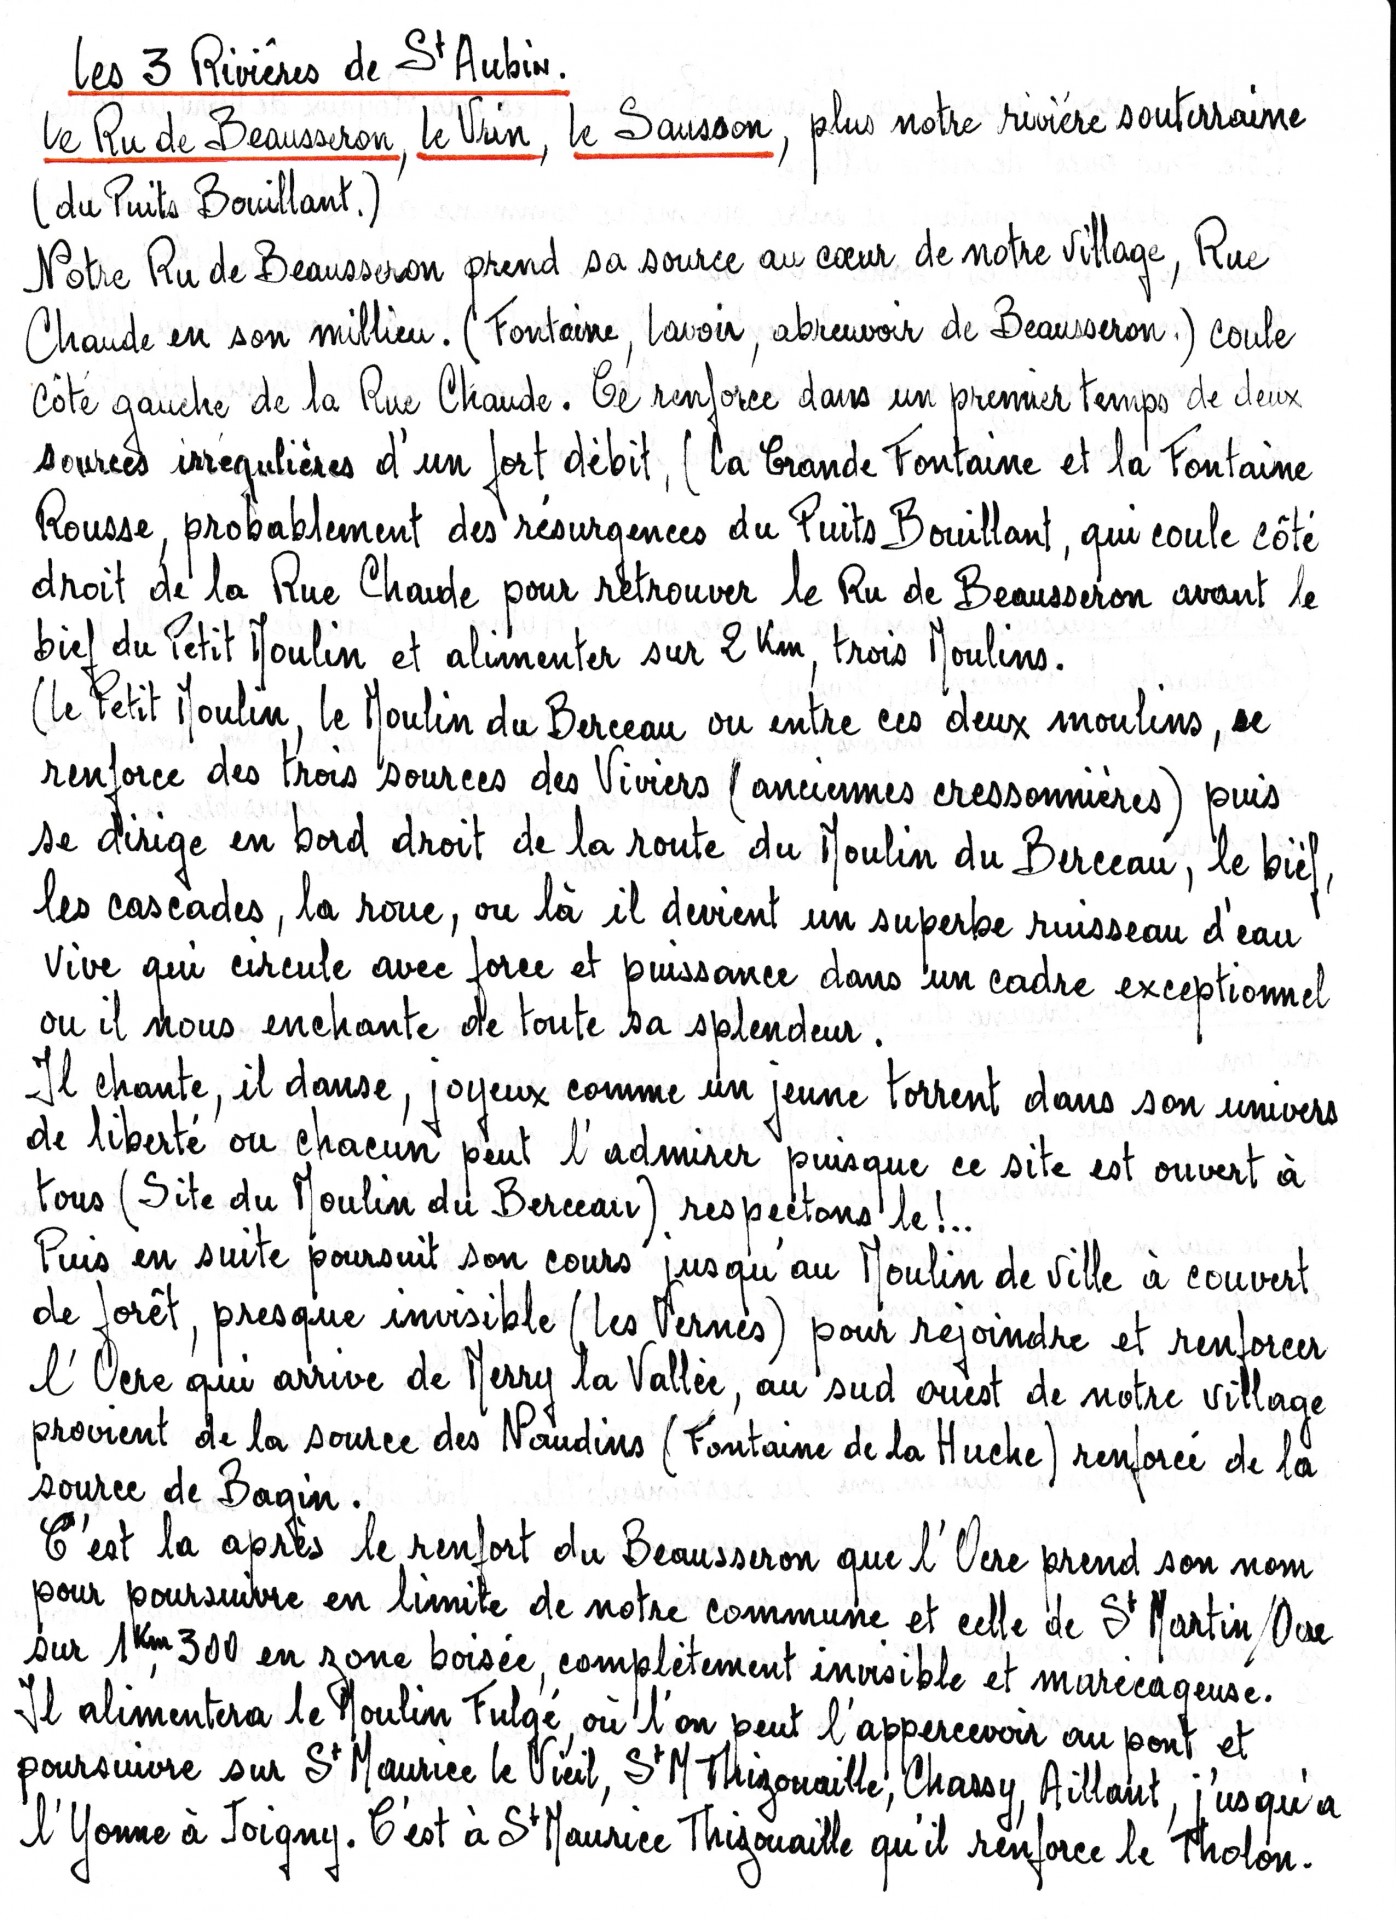 Les 3 Rivières de St Aubin.
Le Ru de Beausseron, le Vrin, le Sausson, plus notre rivière souterraine
(du Puits Bouillant.)
Notre Ru de Beausseron prend sa source au cœur de notre village, Rue
Chaude en son millieu. (Fontaine, lavoir, abreuvoir de Beausseron.) coule
côté gauche de la Rue Chaude. Ce renforce dans un premier temps de deux
sources irrégulières d'un fort débit, (La Grande Fontaine et la Fontaine
Rousse, probablement des résurgences du Puits Bouillant, qui coule côté
droit de la Rue Chaude pour retrouver le Ru de Beausseron avant le
bief du Petit Moulin et alimenter sur 2 Km, trois Moulins.
(Le Petit Moulin, le Moulin du Berceau ou entre ces deux moulins, se
renforce des trois sources des Viviers (anciennes cressonnières) puis
se dirige en bord droit de la route du Moulin du Berceau, le bief,
les cascades, la roue, ou là il devient un superbe ruisseau d'eau
vive qui circule avec force et puissance dans un cadre exceptionnel
ou il nous enchante de toute sa splendeur.
Il chante, il danse, joyeux comme un jeune torrent dans son univers
de liberté ou chacun peut l'admirer puisque ce site est ouvert à
tous (Site du Moulin du Berceau) respectons le!..
Puis en suite poursuit son cours jusqu'au Moulin de Ville à couvert
de forêt, presque invisible (les Vernes) pour rejoindre et renforcer
l'Ocre qui arrive de Merry la Vallée, au sud ouest de notre village
provient de la source des Naudins (Fontaine de la Huche) renforcé de la
source de Bagin.
C'est la après le renfort du Beausseron que l'Ocre prend son nom
pour poursuivre en limite de notre commune et celle de St Martin/Ocre
sur 1Km,300 en zone boisée, complètement invisible et marécageuse.
Il alimentera le Moulin Fulgé, où l'on peut l'appercevoir au pont et
poursuivre sur St Maurice le Vieil, St M Thizouaille, Chassy, Aillant, j'usqu'a
l'Yonne à Joigny. C'est à St Maurice Thizouaille qu'il renforce le Tholon.